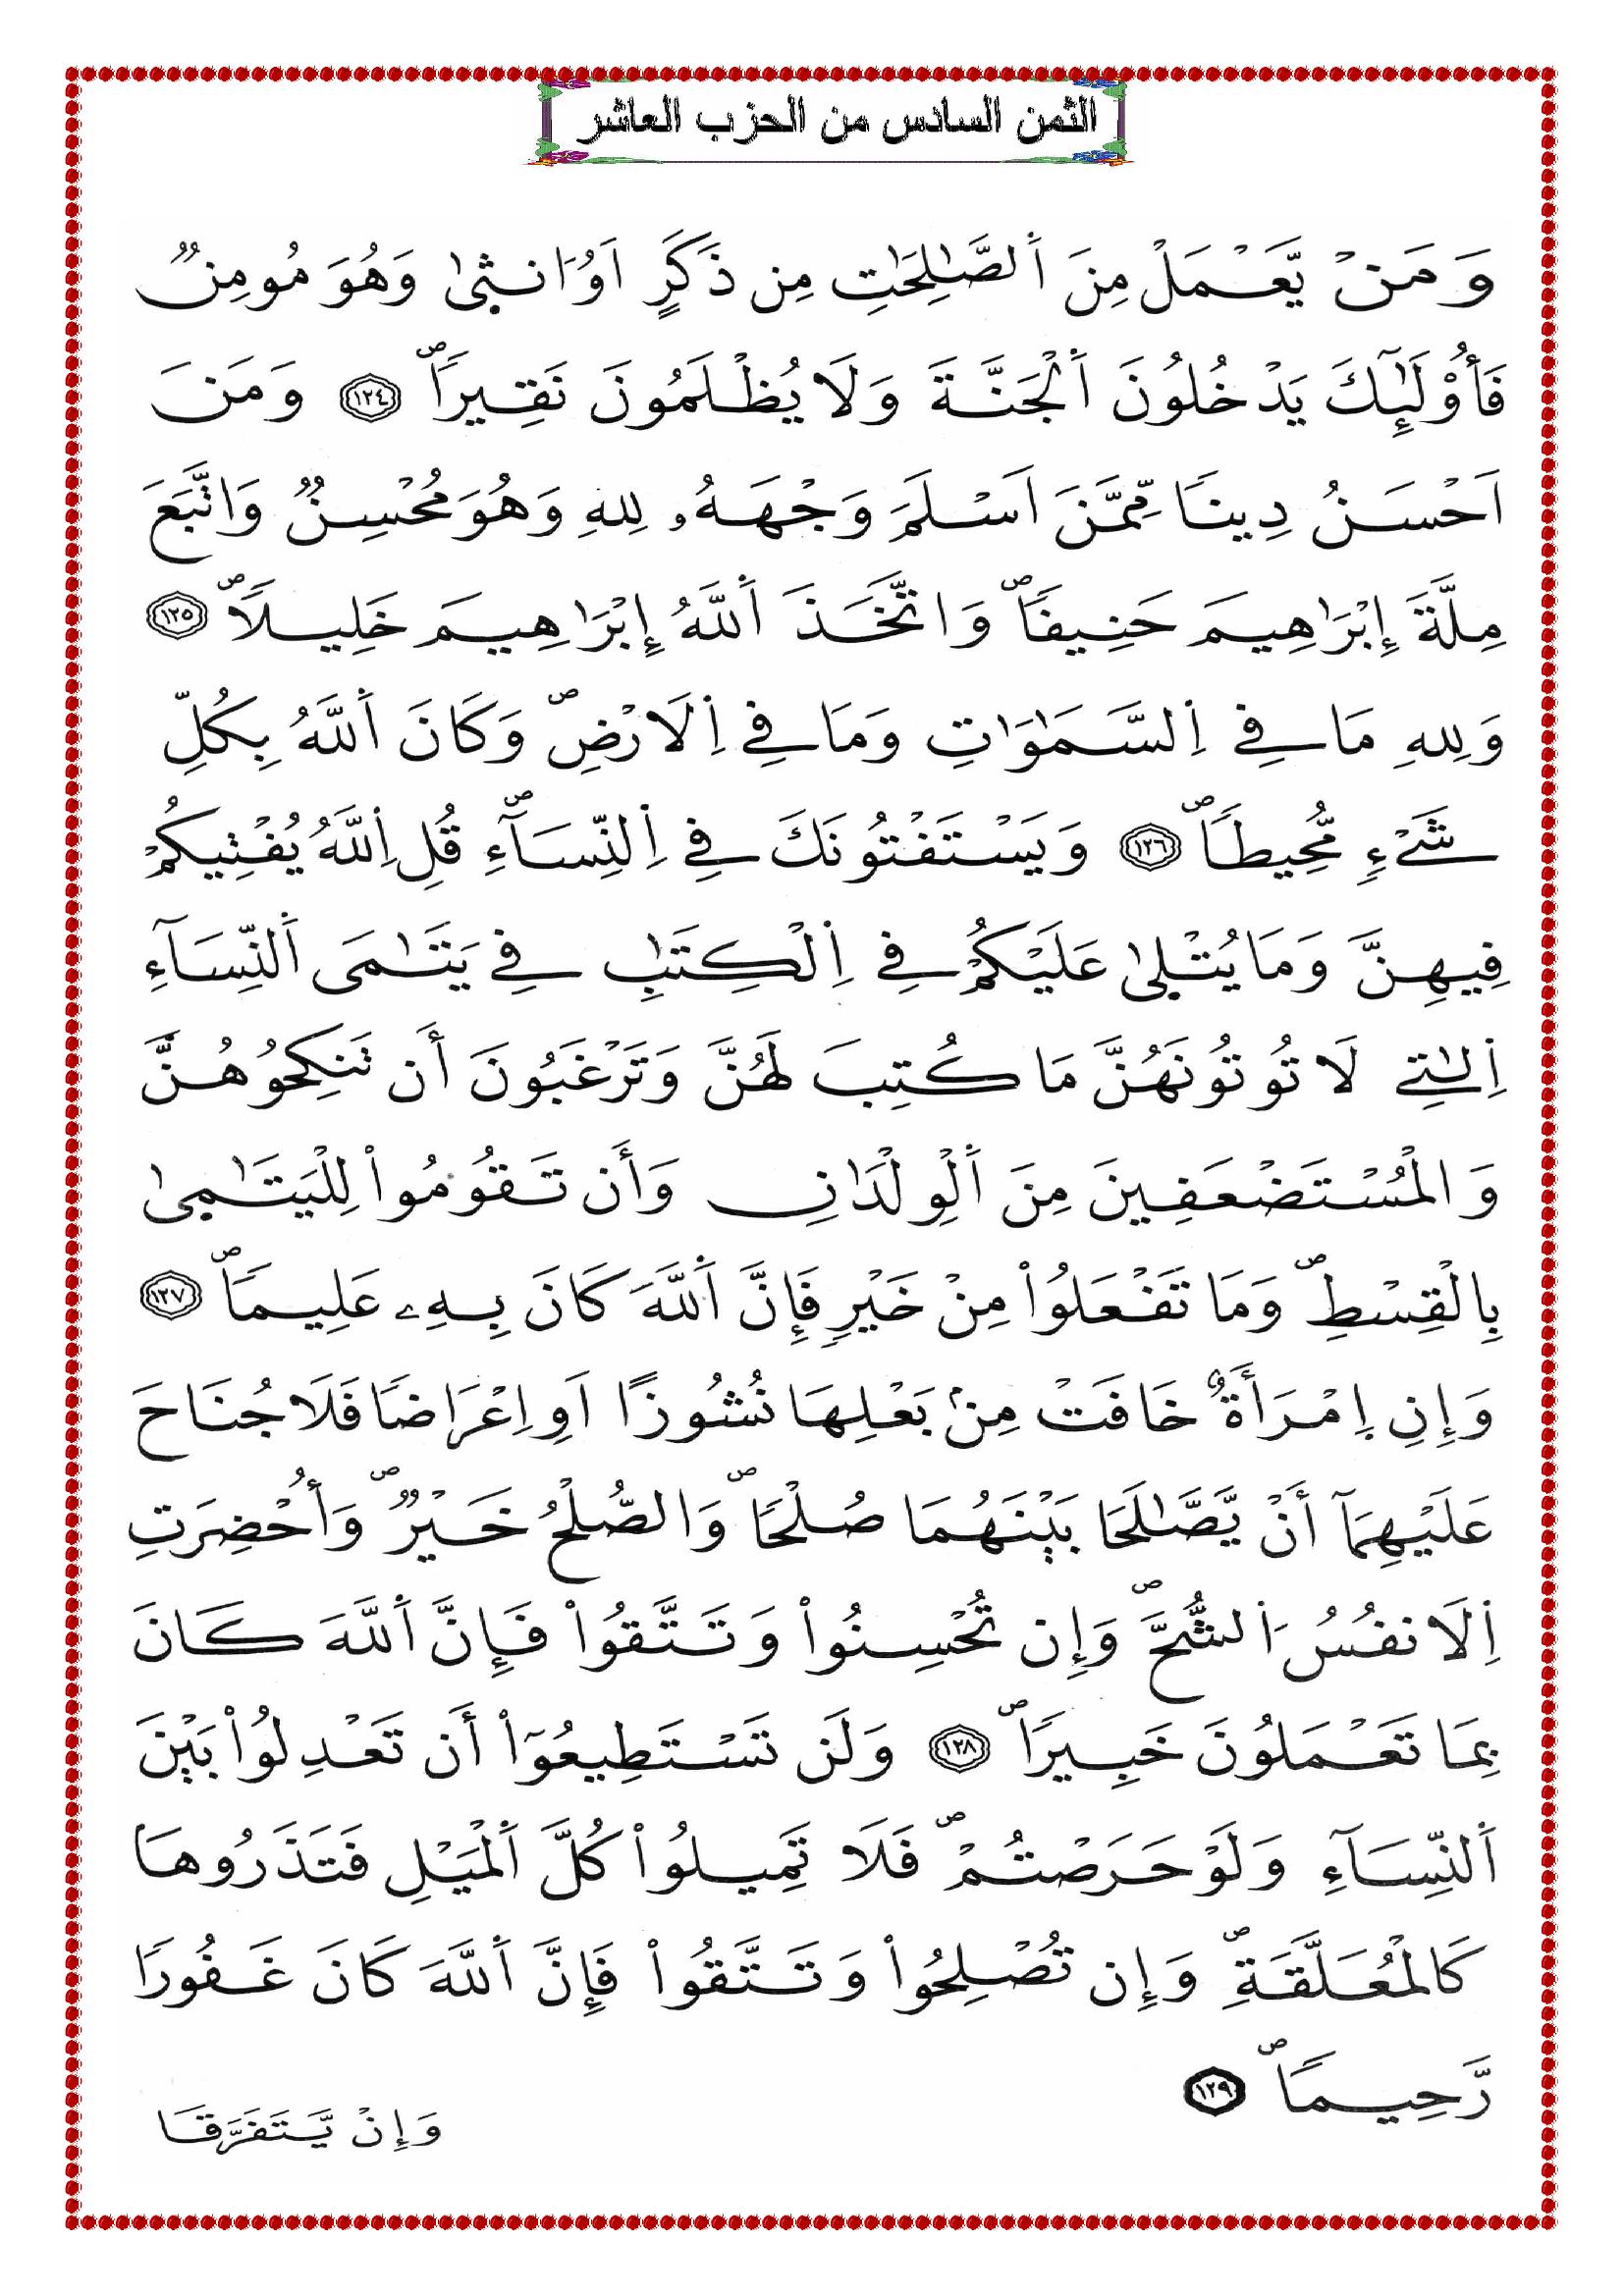 الثمن السادس من الحزب العاشر
وَمَنْ يَّعْمَلْ مِنَ اَ۬لصَّٰلِحَٰتِ مِن ذَكَرٍ اَوُ ا۟نث۪يٰ وَهُوَ مُومِنٞ
فَأُوْلَٰٓئِكَ يَدْخُلُونَ اَ۬لْجَنَّةَ وَلَا يُظْلَمُونَ نَقِيراٗۖ ١٢٤ وَمَنَ
اَحْسَنُ دِيناٗ مِّمَّنَ اَسْلَمَ وَجْهَهُۥ لِلهِ وَهُوَ مُحْسِنٞ وَاتَّبَعَ
مِلَّةَ إِبْرَٰهِيمَ حَنِيفاٗۖ وَاتَّخَذَ اَ۬للَّهُ إِبْرَٰهِيمَ خَلِيلاٗۖ ١٢٥
وَلِلهِ مَا فِے اِ۬لسَّمَٰوَٰتِ وَمَا فِے اِ۬لَارْضِۖ وَكَانَ اَ۬للَّهُ بِكُلِّ
شَےْءٖ مُّحِيطاٗۖ ١٢٦ وَيَسْتَفْتُونَكَ فِے اِ۬لنِّسَآءِۖ قُلِ اِ۬للَّهُ يُفْتِيكُمْ
فِيهِنَّ وَمَا يُتْل۪يٰ عَلَيْكُمْ فِے اِ۬لْكِتَٰبِ فِے يَتَٰمَي اَ۬لنِّسَآءِ
اِ۬لٰتِے لَا تُوتُونَهُنَّ مَا كُتِبَ لَهُنَّ وَتَرْغَبُونَ أَن تَنكِحُوهُنَّ
وَالْمُسْتَضْعَفِينَ مِنَ اَ۬لْوِلْدَٰنِ وَأَن تَقُومُواْ لِلْيَتَٰم۪يٰ
بِالْقِسْطِۖ وَمَا تَفْعَلُواْ مِنْ خَيْرٖ فَإِنَّ اَ۬للَّهَ كَانَ بِهِۦ عَلِيماٗۖ ١٢٧
وَإِنِ اِ۪مْرَأَةٌ خَافَتْ مِنۢ بَعْلِهَا نُشُوزاً اَوِ اِعْرَاضاٗ فَلَا جُنَاحَ
عَلَيْهِمَآ أَنْ يَّصَّٰلَحَا بَيْنَهُمَا صُلْحاٗۖ وَالصُّلْحُ خَيْرٞۖ وَأُحْضِرَتِ
اِ۬لَانفُسُ اُ۬لشُّحَّۖ وَإِن تُحْسِنُواْ وَتَتَّقُواْ فَإِنَّ اَ۬للَّهَ كَانَ
بِمَا تَعْمَلُونَ خَبِيراٗۖ ١٢٨ وَلَن تَسْتَطِيعُوٓاْ أَن تَعْدِلُواْ بَيْنَ
اَ۬لنِّسَآءِ وَلَوْ حَرَصْتُمْۖ فَلَا تَمِيلُواْ كُلَّ اَ۬لْمَيْلِ فَتَذَرُوهَا
كَالْمُعَلَّقَةِۖ وَإِن تُصْلِحُواْ وَتَتَّقُواْ فَإِنَّ اَ۬للَّهَ كَانَ غَفُوراٗ
رَّحِيماٗۖ ١٢٩
وَإِنْ يَّتَفَرَّقَا